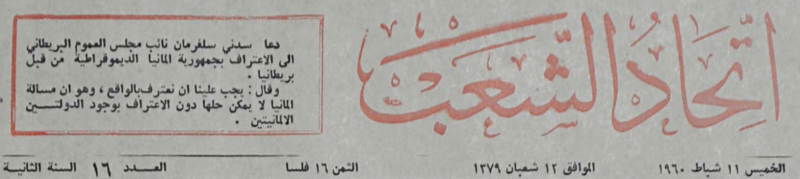 اتحاد الشعب
دعا سدني سلفرمان نائب مجلس العموم البريطاني
الى الاعتراف بجمهورية المانيا الديموقراطية من قبل
بريطانيا .
وقال : يجب علينا ان نعترف بالواقع ، وهو ان مسالة
المانيا لا يمكن حلها دون الاعتراف بوجود الدولتين
الالمانيتين .
الخميس ١١ شباط ١٩٦٠ الموافق ١٢ شعبان ١٣٧٩ الثمن ١٦ فلسا العدد ١٦ السنة الثانية